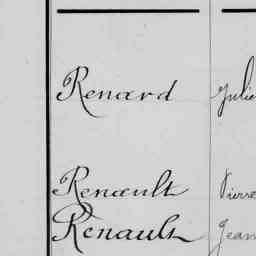 Renard Julie
Renault Pierre
Renault Jean